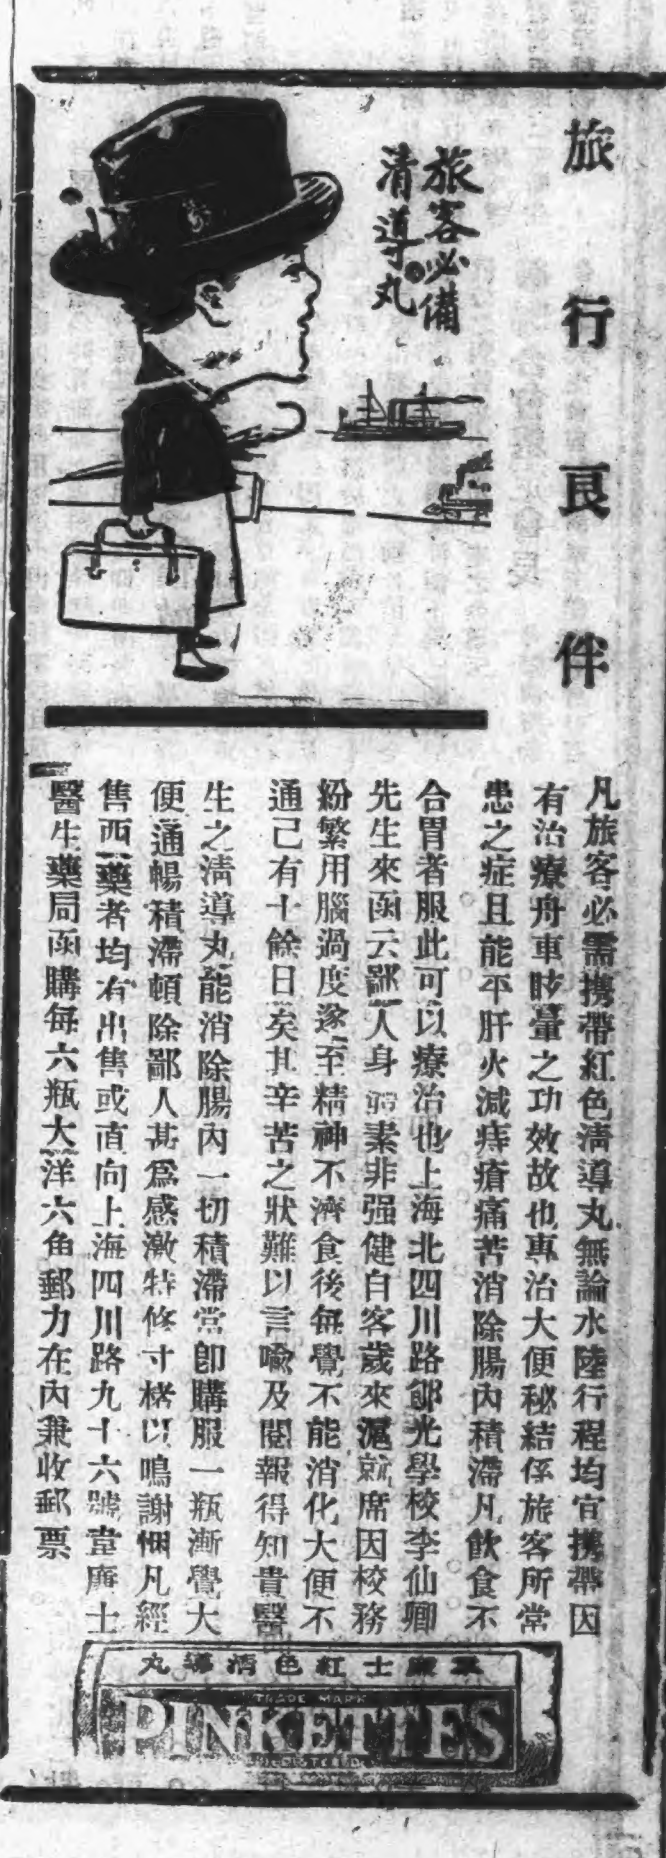 旅行良伴
旅客必備
清導丸
凡旅客必需携帶紅色清導丸無論水陸行程均宜携帶因
有治療舟車眩暈之功效故也專治大便秘結係旅客所常
患之症且能平肝火減痔瘡痛苦消除腸內積滯凡飲食不
合胃者服此可以療治也上海北四川路
光學校李仙卿
先生來函云鄙人身
素非强健自客歲來滬就席因校務
紛繁用腦過度遂至精神不濟食後每覺不能消化大便不
通己有十餘日矣其辛苦之狀難以言喩及閱報得知貴醫
生之清導丸能消除腸內一切積滯當卽購服一瓶漸覺大
便通暢積滯頓除鄙人甚爲感激特修寸楮以鳴謝悃凡經
售西藥者均有出售或直向上海四川路九十六號韋廉士
醫生藥局函購每六瓶大洋六角郵力在內兼收郵票
韋廉士紅色清導丸
TRADE MARK
PINKETTES